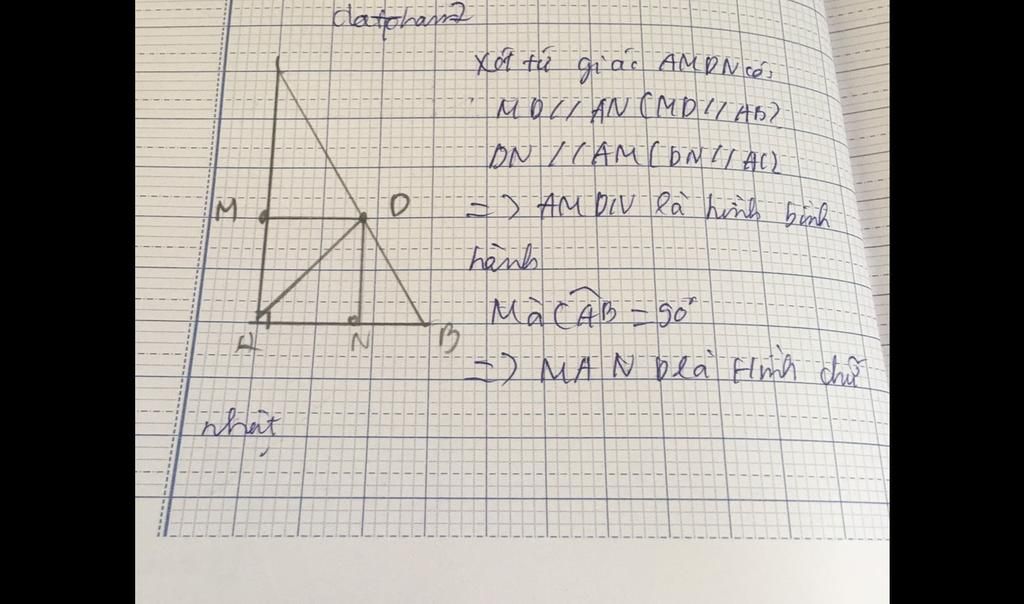 datpham2
Xét tứ giác AMDN có:
MD // AN (MD // AB)
DN // AM (DN // AC)
=> AMDN là hình bình
hành
M D
Mà CAB = 90°
A N B
=> MAND là Hình chữ
nhật